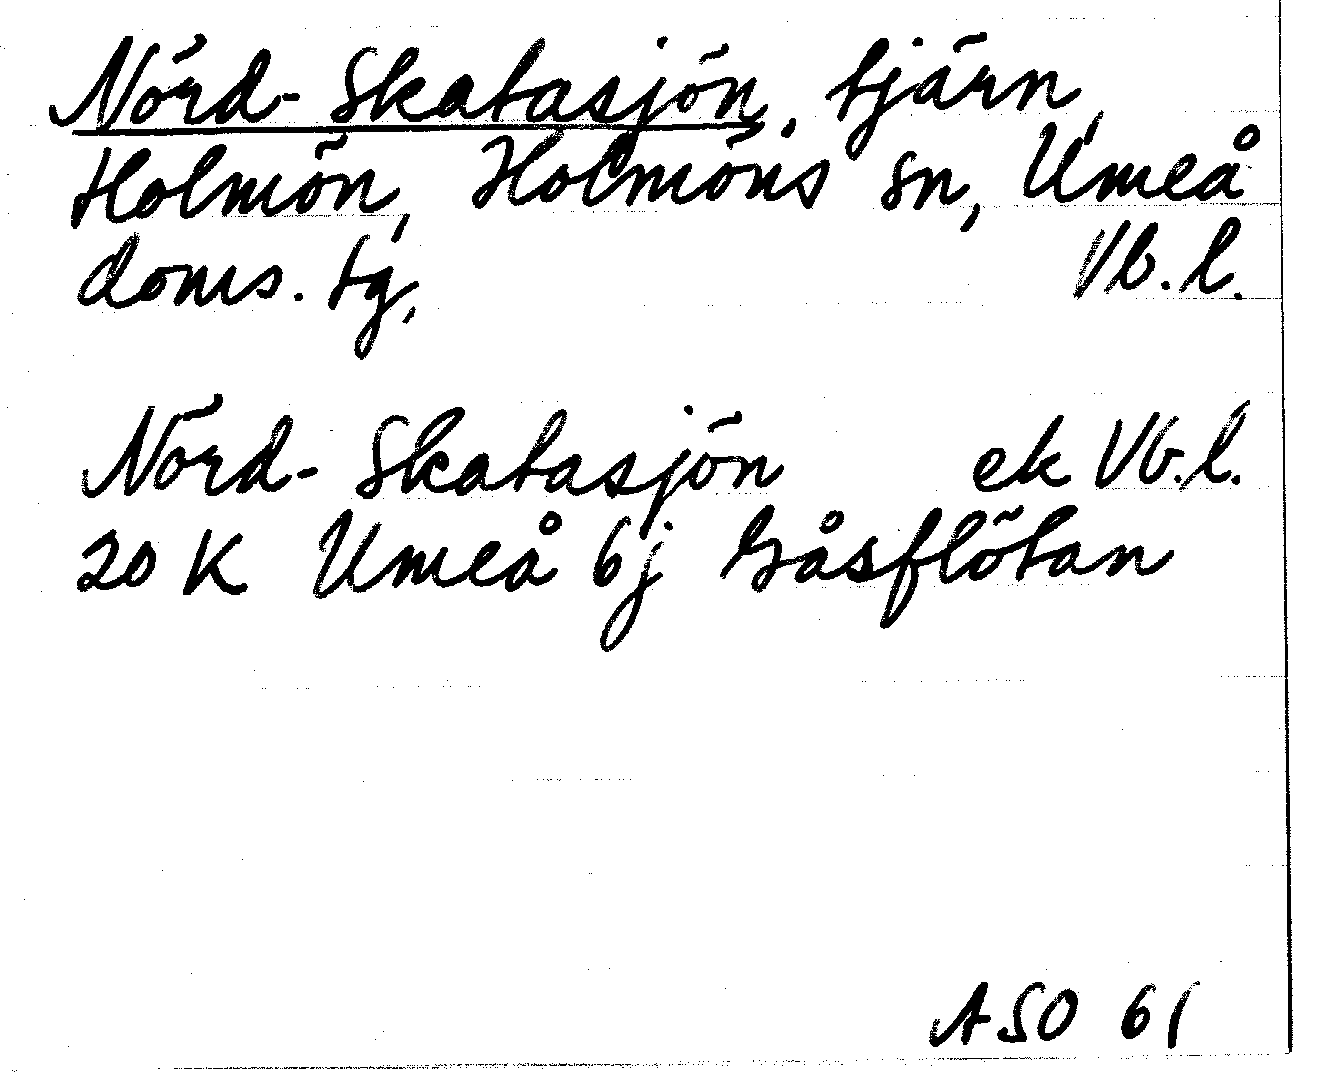 Nörd-Skatasjön, tjärn,
Holmön, Holmöns sn, Umeå
doms. tg, Vb.l.
Nörd-Skatasjön ek Vb.l.
20 K Umeå 6j Gåsflötan
ASO 61